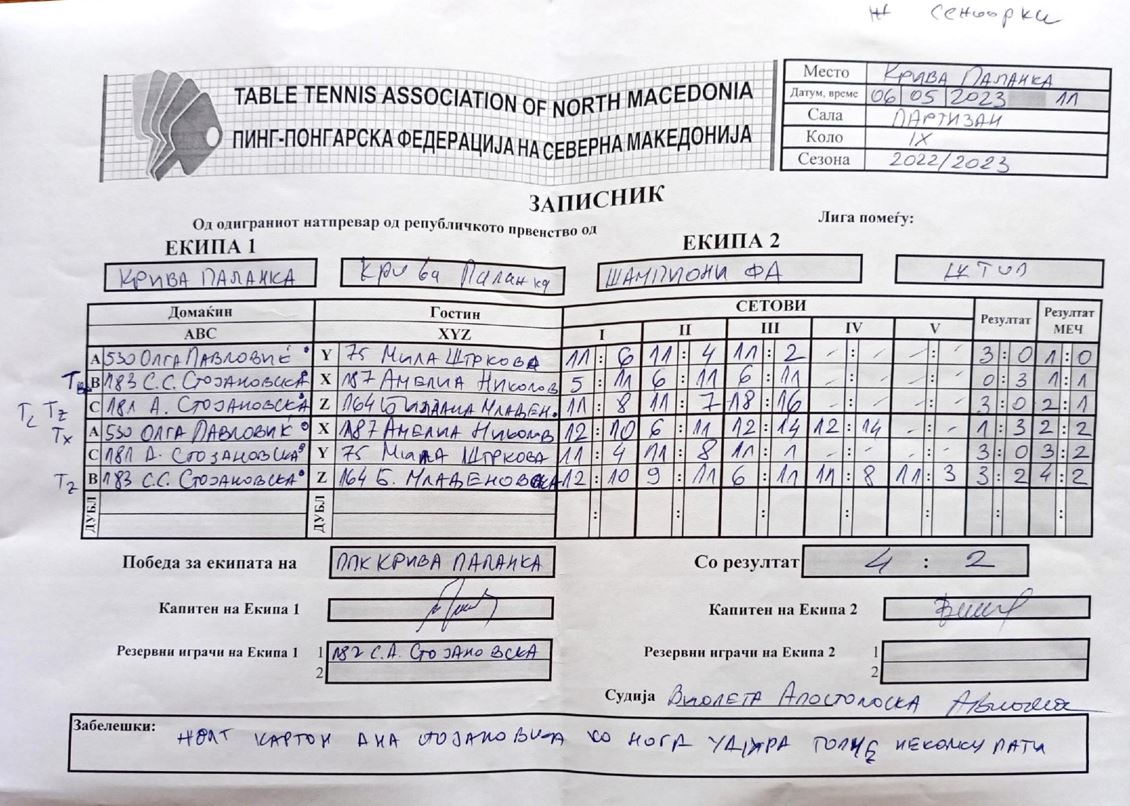 Ж сениорки
TABLE TENNIS ASSOCIATION OF NORTH MACEDONIA
ПИНГ-ПОНГАРСКА ФЕДЕРАЦИЈА НА СЕВЕРНА МАКЕДОНИЈА
Место КРИВА ПАЛАНКА
Датум, време 06 05 2023 11
Сала ПАРТИЗАН
Коло IX
Сезона 2022/2023
ЗАПИСНИК
Од одиграниот натпревар од републичкото првенство од
Лига помеѓу:
ЕКИПА 1 ЕКИПА 2
КРИВА ПАЛАНКА Крива Паланка ШАМПИОНИ ФА
Домаќин Гостин СЕТОВИ Резултат Резултат МЕЧ
ABC XYZ I II III IV V
A 530 ОЛГА ПАВЛОВИЌ Y 75 МИЛА ШТРКОВА 11 : 6 11 : 4 11 : 2 - : - - : - 3 : 0 1 : 0
B 183 С.С. СТОЈАНОВСКА X 187 АМЕЛИА НИКОЛОВ 5 : 11 6 : 11 6 : 11 - : - - : - 0 : 3 1 : 1
Tc Tz C 181 А. СТОЈАНОВСКА Z 164 МЛАДЕН. 11 : 8 11 : 7 18 : 16 - : - - : - 3 : 0 2 : 1
Tx A 530 ОЛГА ПАВЛОВИЌ X 187 АМЕЛИА НИКОЛОВ 12 : 10 6 : 11 12 : 14 12 : 14 - : - 1 : 3 2 : 2
C 181 А. СТОЈАНОВСКА Y 75 МИЛА ШТРКОВА 11 : 4 11 : 8 11 : 1 - : - - : - 3 : 0 3 : 2
Tz B 183 С.С. СТОЈАНОВСКА Z 164 Б. МЛАДЕНОВСКА 12 : 10 9 : 11 6 : 11 11 : 8 11 : 3 3 : 2 4 : 2
ДУБЛ ДУБЛ : : : : : : :
Победа за екипата на ППК КРИВА ПАЛАНКА Со резултат 4 : 2
Капитен на Екипа 1 Капитен на Екипа 2
Резервни играчи на Екипа 1 1 182 С.А. СТОЈАНОВСКА Резервни играчи на Екипа 2 1
2 2
Судија ВИОЛЕТА АПОСТОЛОСКА
Забелешки: ЖОЛТ КАРТОН АНА СТОЈАНОВСКА СО НОГА УДИРА ТОПЧЕ НЕКОЛКУ ПАТИ